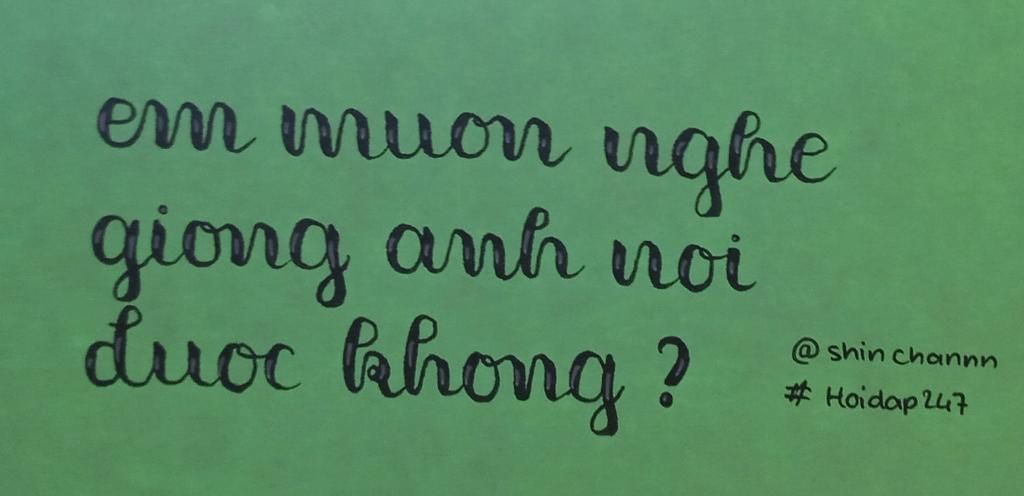 em muon nghe
giong anh noi
duoc khong ?
@ shin channn
# Hoidap247